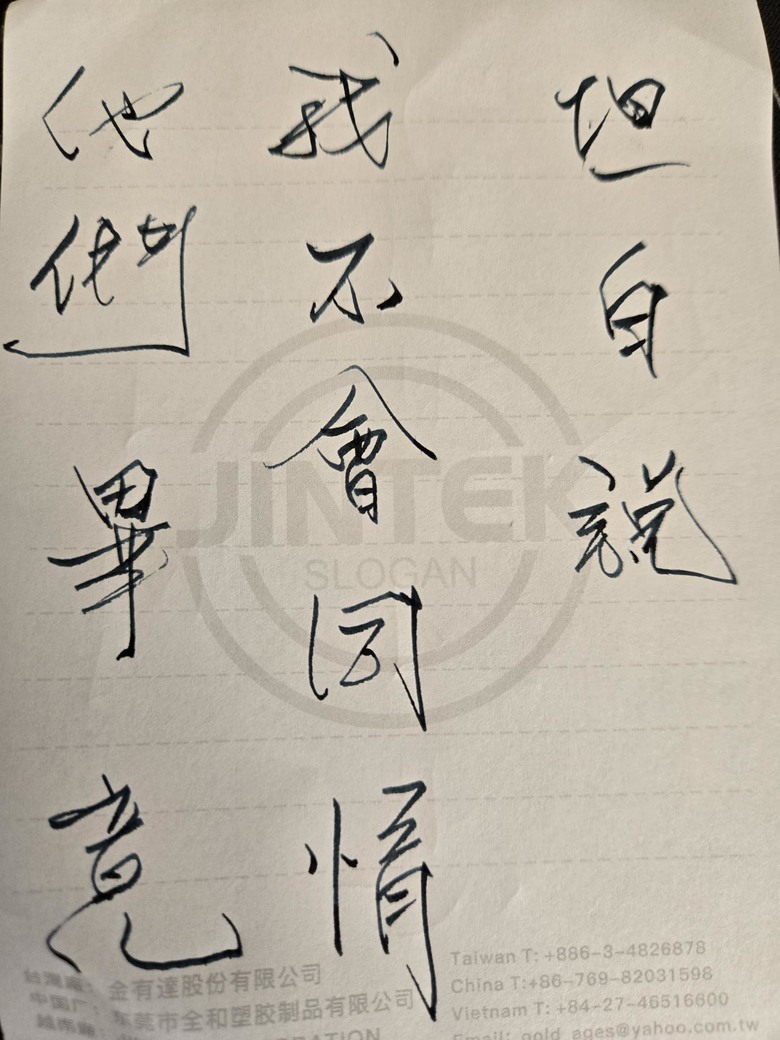 坦白說
我不會同情
他們畢竟
JINTEK
SLOGAN
台灣廠: 金有達股份有限公司
中国厂: 东莞市全和塑胶制品有限公司
Taiwan T: +886-3-4826878
China T:+86-769-82031598
Vietnam T: +84-27-46516600
Email: gold_ages@yahoo.com.tw